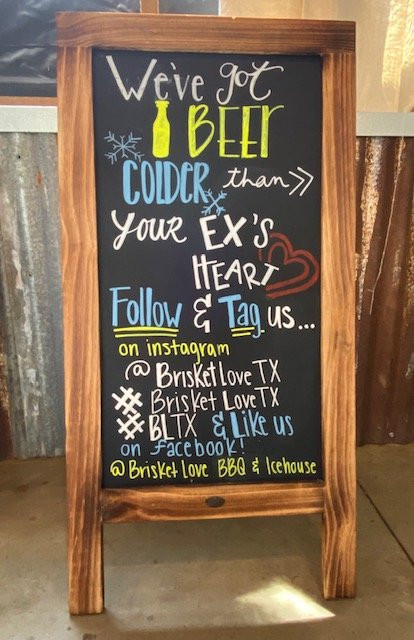 We've got
BEER
COLDER than >>
your EX'S
HEART
Follow & Tag us...
on instagram
@ BrisketLoveTX
# BrisketLoveTX
# BLTX & Like us
on facebook!
@ Brisket Love BBQ & Icehouse